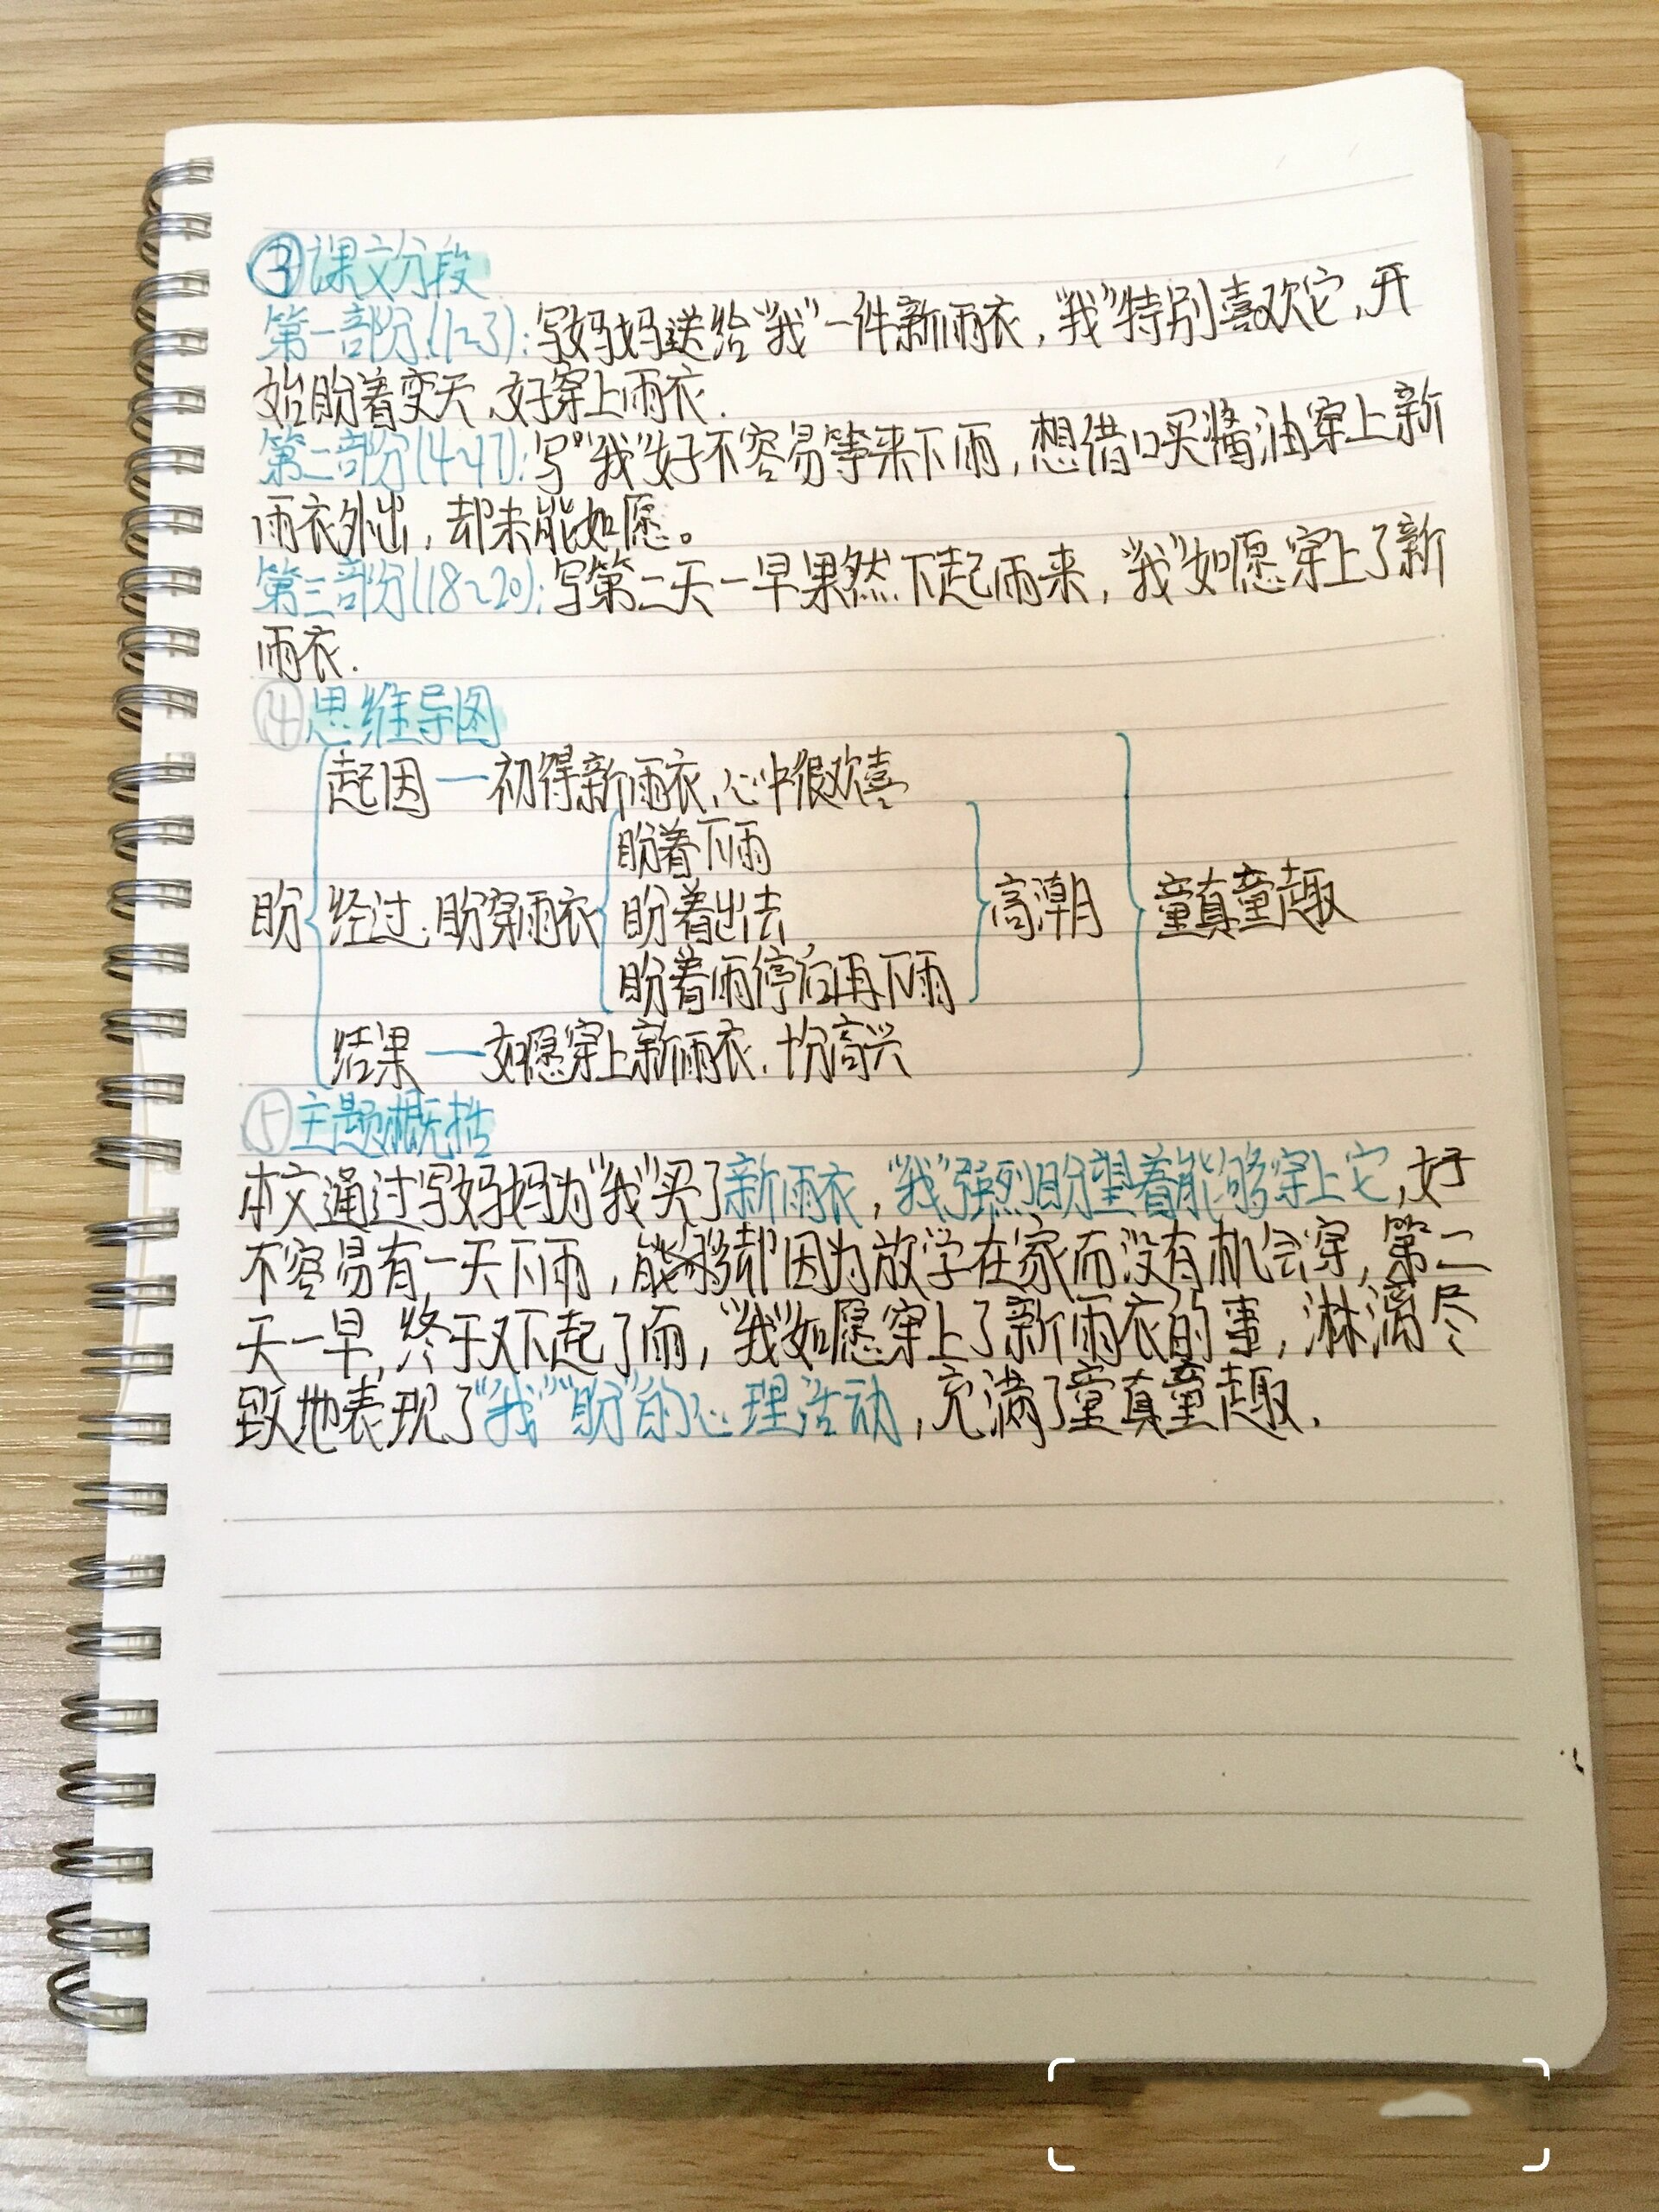 ③课文分段
第一部分(1~3):写妈妈送给“我”一件新雨衣,“我”特别喜欢它,开
始盼着变天,好穿上雨衣.
第二部分(4~17):写“我”好不容易等来下雨,想借口买酱油穿上新
雨衣外出,却未能如愿。
第三部分(18~20):写第二天一早果然下起雨来,“我”如愿穿上了新
雨衣.
④思维导图
起因—初得新雨衣,心中很欢喜
盼着下雨
盼 经过:盼穿雨衣 盼着出去 高潮 童真童趣
盼着雨停后再下雨
结果—如愿穿上新雨衣.十分高兴
⑤主题概括
本文通过写妈妈为“我”买了新雨衣,“我”强烈盼望着能够穿上它,好
不容易有一天下雨,却因为放学在家而没有机会穿,第二
天一早,终于又下起了雨,“我”如愿穿上了新雨衣的事,淋漓尽
致地表现了“我”“盼”的心理活动,充满了童真童趣.